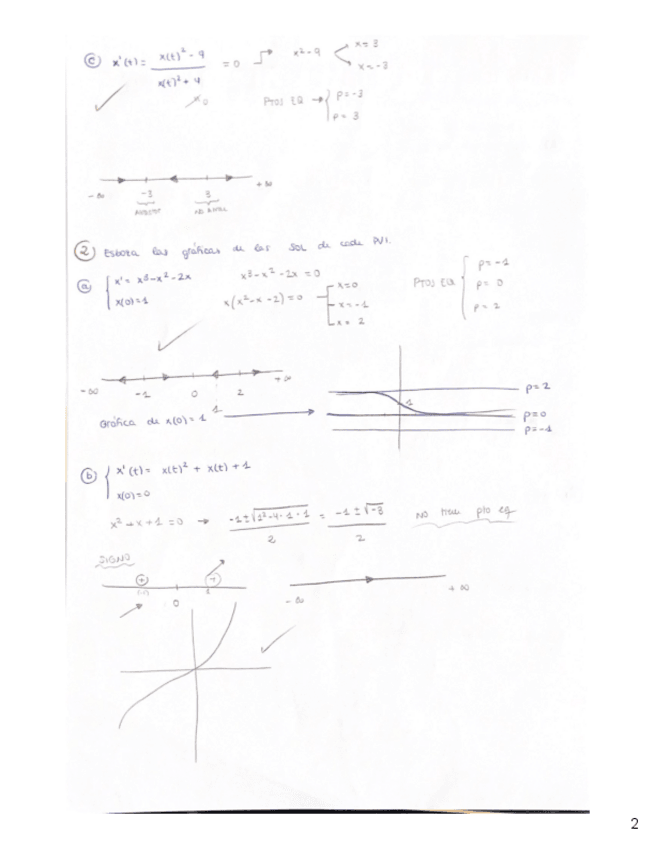 ⓒ x'(t) = x(t)² - 9 / x(t)² + 4 = 0 → x² - 9 < x = 3
x = -3
PTOS EQ → { p = -3
p = 3
-∞ -3 3 +∞
② Esboza las gráficas de las SOL de cada PVI.
ⓐ { x' = x³ - x² - 2x
x(0) = 1
x³ - x² - 2x = 0
x(x² - x - 2) = 0
x = 0
x = -1
x = 2
PTOS EQ { p = -1
p = 0
p = 2
-∞ -1 0 1 2 +∞
Gráfica de x(0) = 1
1
p = 2
p = 0
p = -1
ⓑ { x'(t) = x(t)² + x(t) + 1
x(0) = 0
x² + x + 1 = 0 → -1 ± √1² - 4 · 1 · 1 / 2 = -1 ± √-3 / 2 NO tiene pto eq
SIGNO
+ +
0
-∞ +∞
2